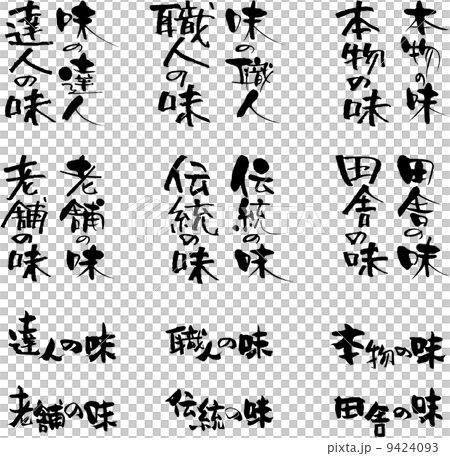 達人の味
味の達人
職人の味
味の職人
本物の味
本物の味
老舗の味
老舗の味
伝統の味
伝統の味
田舎の味
田舎の味
達人の味
職人の味
本物の味
老舗の味
伝統の味
田舎の味
9424093